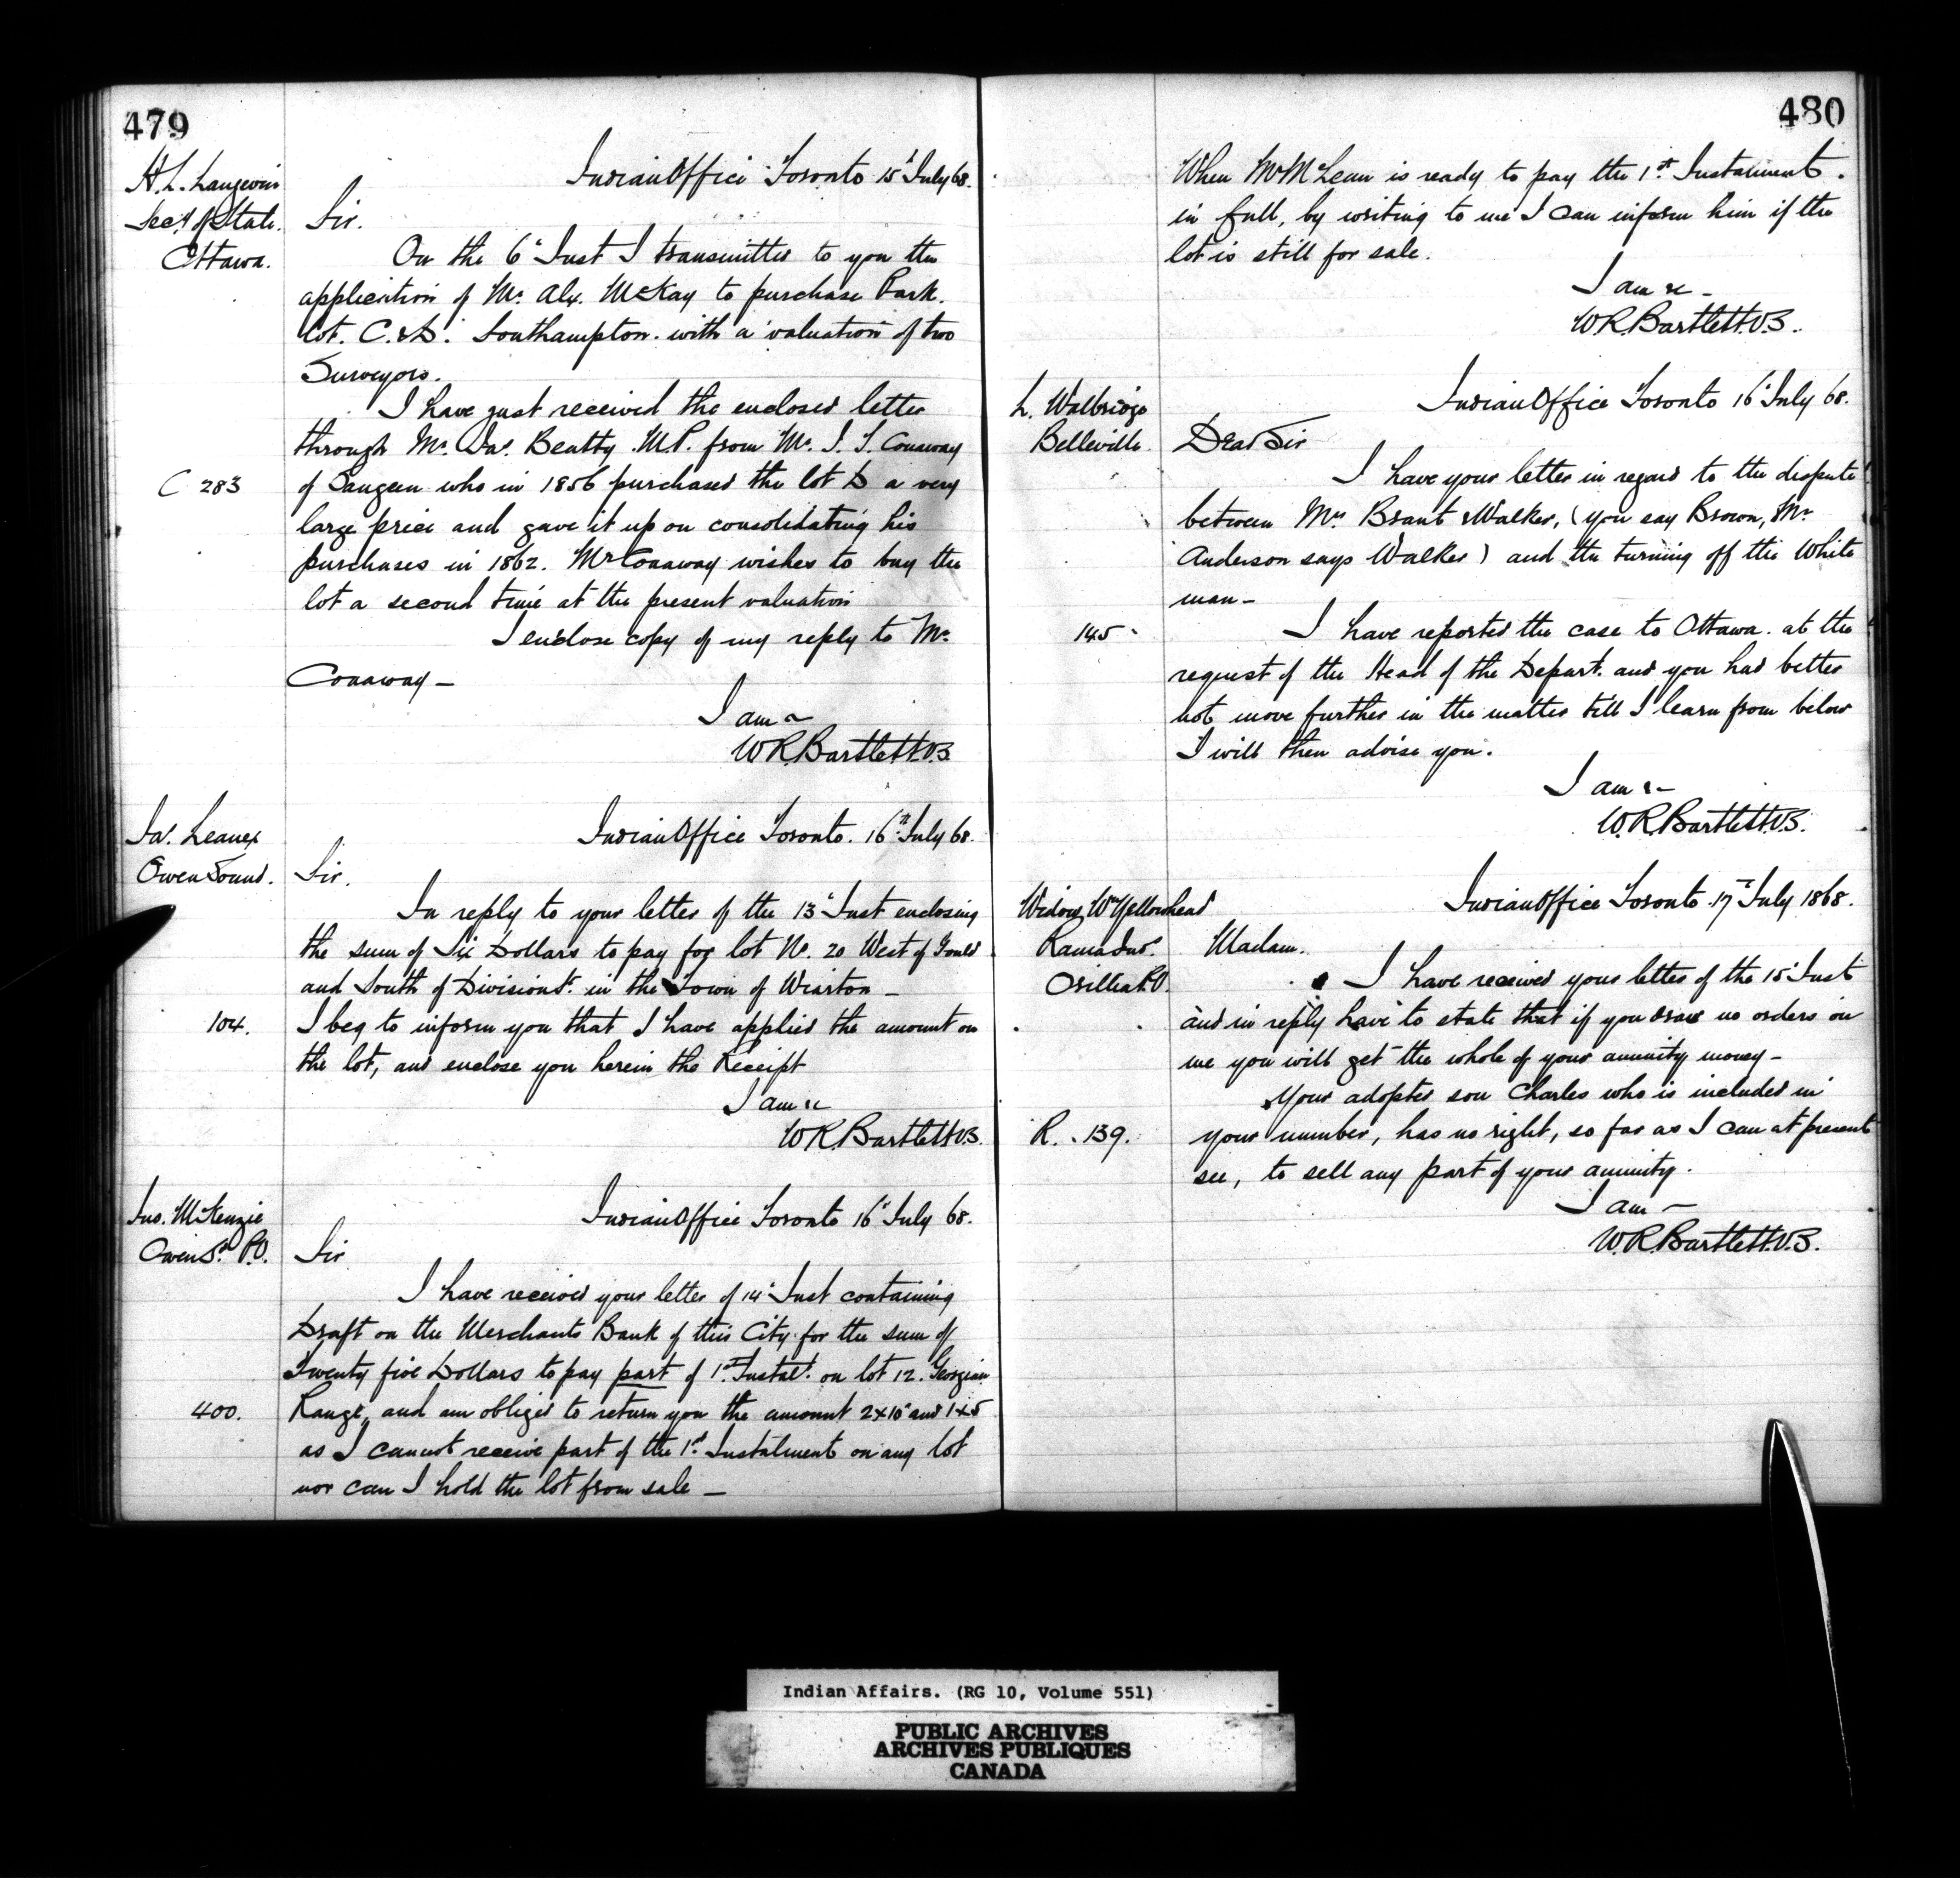 479
H. L. Langevin
Secy. of State.
Ottawa.
Indian Office Toronto 15' July 68.
Sir.
On the 6' Inst I transmitted to you the
application of Mr. Alx. McKay to purchase Park.
lot. C. & D. Southampton. with a valuation of two
Surveyors.
I have just received the enclosed letter
through Mr. Jas. Beatty. M.P. from Mr. J. T. Conaway
C 283
of Saugeen who in 1856 purchased the lot D a very
large price and gave it up on consolidating his
purchases in 1862. Mr Conaway wishes to buy the
lot a second time at the present valuation
I enclose copy of my reply to Mr.
Conaway —
I am &
W R. Bartlett. V.S.
Jas. Leaney
Owen Sound.
Indian Office Toronto. 16th July 68.
Sir.
In reply to your letter of the 13' Inst enclosing
the sum of Six Dollars to pay for lot No. 20 West of Gould
and South of Division St. in the Town of Wiarton —
104.
I beg to inform you that I have applied the amount on
the lot, and enclose you herein the Receipt
I am &c
W R. Bartlett V.S.
Jno. McKenzie
Owen Sd. P.O.
Indian Office Toronto 16' July 68.
Sir
I have received your letter of 14' Inst containing
Draft on the Merchants Bank of this City for the sum of
Twenty five Dollars to pay part of 1st Instalt. on lot 12. Georgian
400.
Range, and am obliged to return you the amount 2x10' and 1x5
as I cannot receive part of the 1st Instalment on any lot
nor can I hold the lot from sale —
480
When Mr McLean is ready to pay the 1st Instalment.
in full, by writing to me I can inform him if the
lot is still for sale.
I am &c —
W R. Bartlett. V.S.
L. Walbridge
Belleville.
Indian Office Toronto 16' July 68.
Dear Sir
I have your letter in regard to the dispute
between Mrs Brant & Walker, (you say Brown, Mr
Anderson says Walker) and the turning off the White
man —
145
I have reported the case to Ottawa. at the
request of the Head of the Depart. and you had better
not move further in the matter till I learn from below
I will then advise you.
I am &—
W. R. Bartlett. V.S.
Widow Wm Yellowhead
Rama Ins.
Orillia P.O.
Indian Office Toronto 17th July 1868.
Madam.
I have received your letter of the 15' Inst
and in reply have to state that if you draw no orders on
me you will get the whole of your annuity money —
Your adopted son Charles who is included in
R. 139.
your number, has no right, so far as I can at present
see, to sell any part of your annuity.
I am —
W. R. Bartlett. V.S.
Indian Affairs. (RG 10, Volume 551)
PUBLIC ARCHIVES
ARCHIVES PUBLIQUES
CANADA